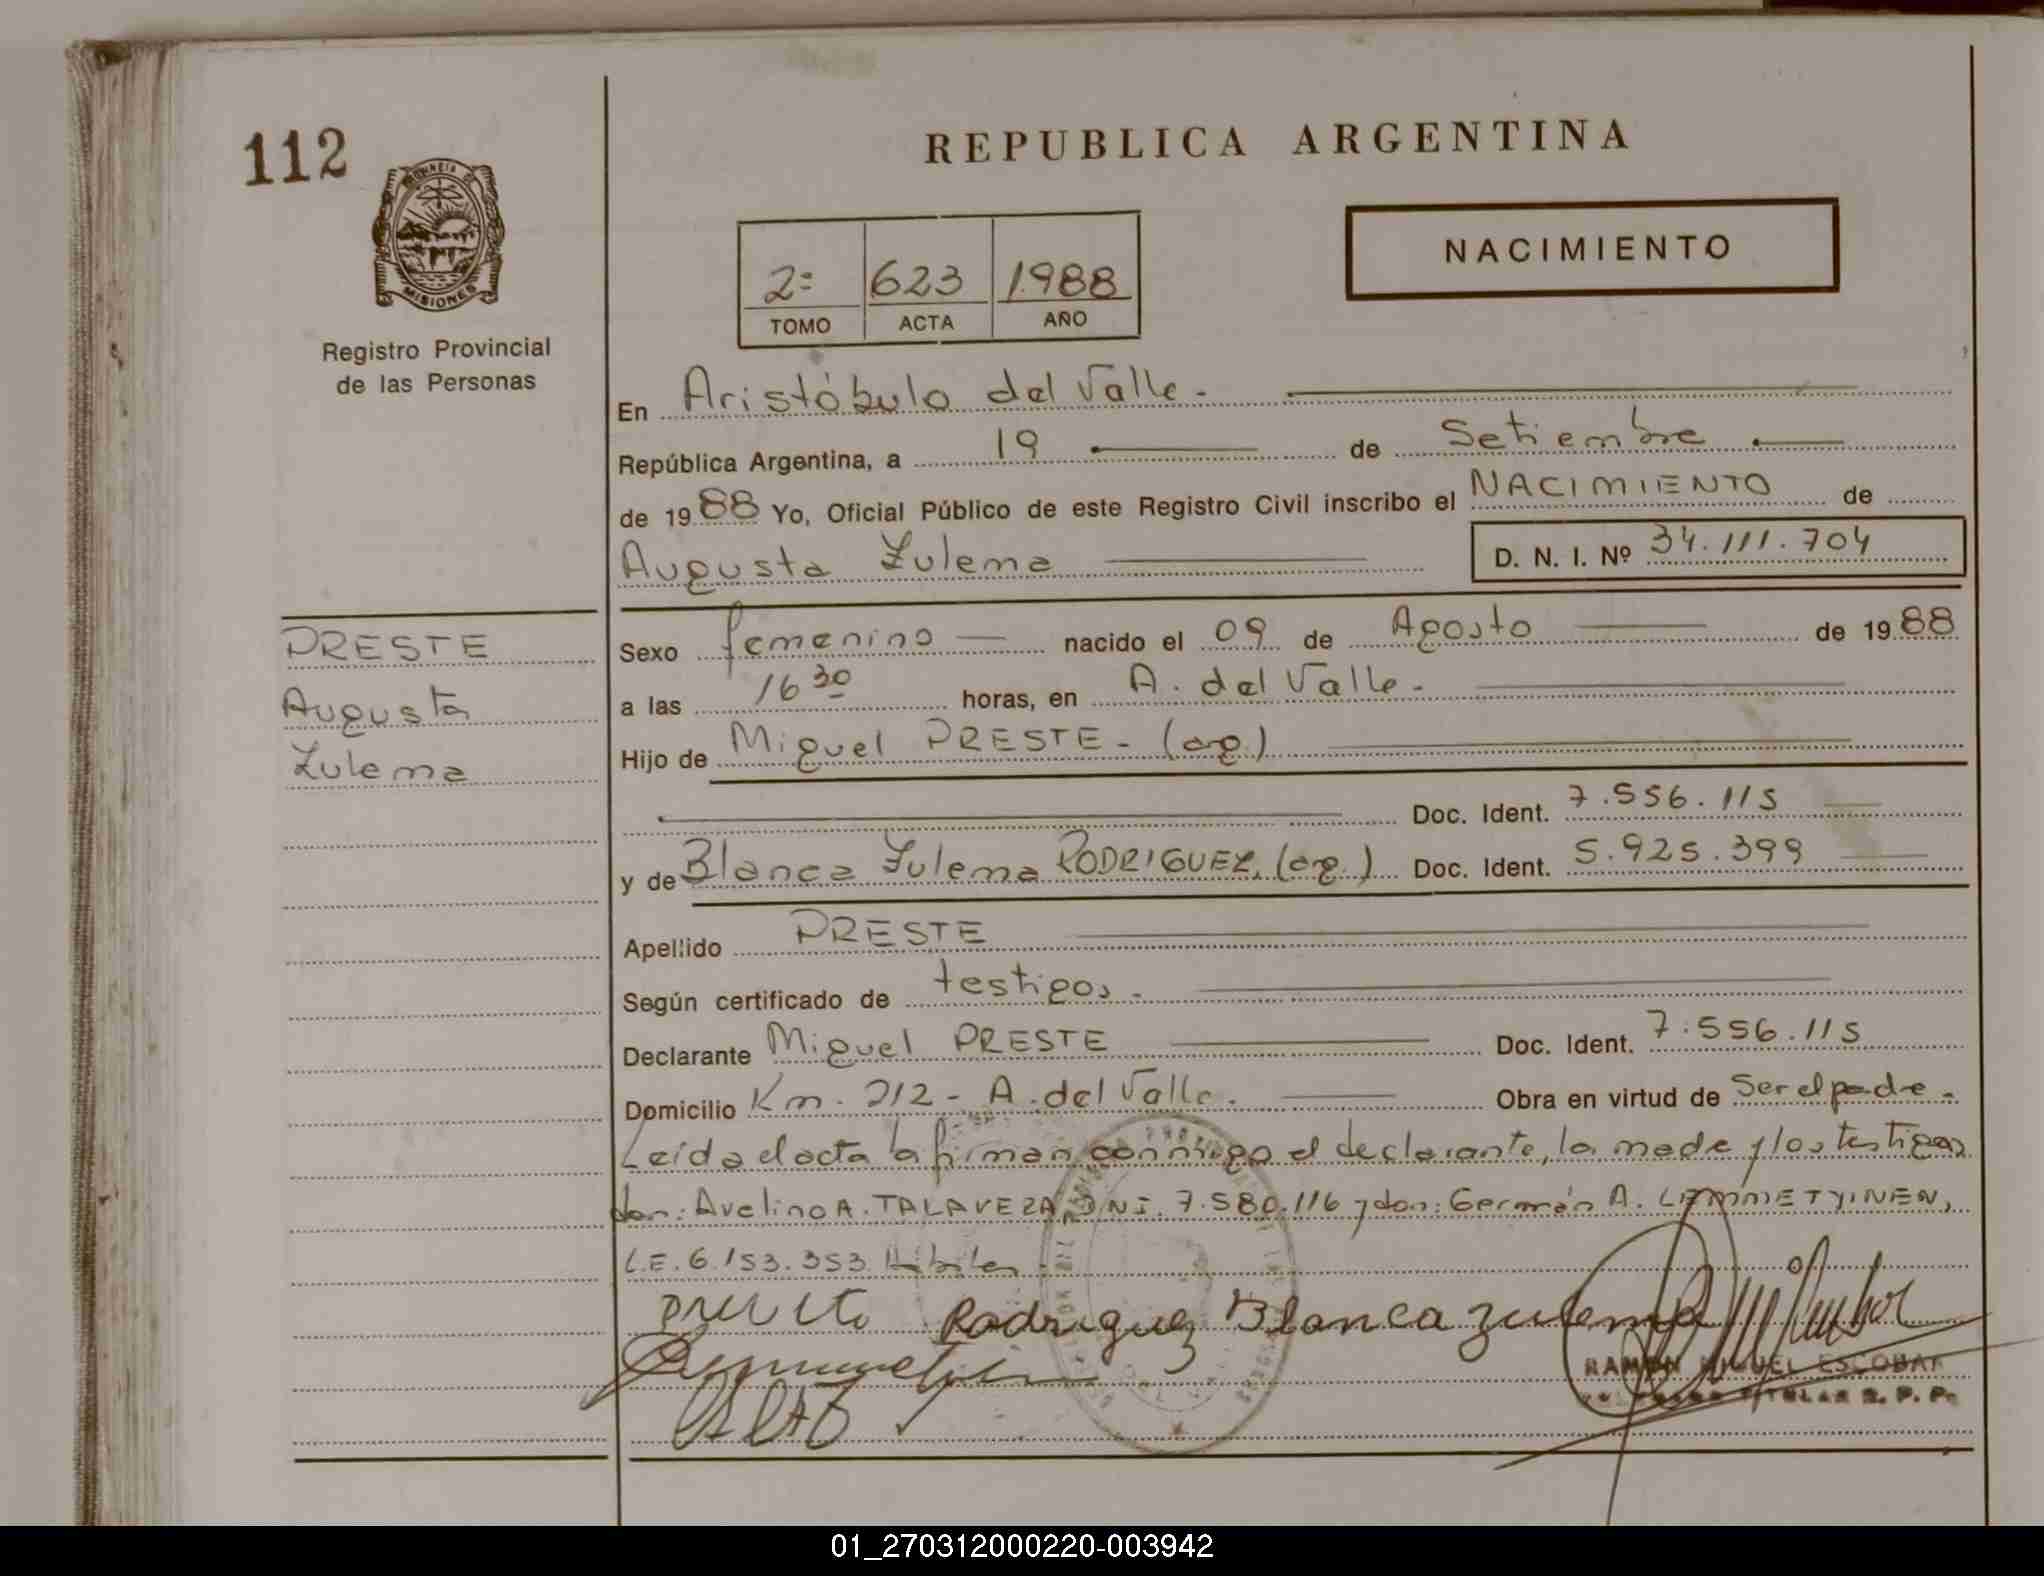 112
PROVINCIA DE
MISIONES
Registro Provincial
de las Personas
PRESTE
Augusta
Zulema
REPUBLICA ARGENTINA
NACIMIENTO
2º 623 1.988
TOMO ACTA AÑO
En Aristóbulo del Valle.-
República Argentina, a 19 de Setiembre
de 1988 Yo, Oficial Público de este Registro Civil inscribo el NACIMIENTO de
Augusta Zulema D. N. I. Nº 34.111.704
Sexo femenino nacido el 09 de Agosto de 1988
a las 16 30 horas, en A. del Valle.-
Hijo de Miguel PRESTE - (arg.)
Doc. Ident. 7.556.115
y de Blanca Zulema RODRIGUEZ, (arg.) Doc. Ident. 5.925.399
Apellido PRESTE
Según certificado de testigos.-
Declarante Miguel PRESTE Doc. Ident. 7.556.115
Domicilio Km. 212 - A. del Valle.- Obra en virtud de Ser el padre.-
Leída el acta la firman conmigo el declarante, la madre y los testigos
don: Avelino A. TALAVERA DNI. 7.580.116 y don: Germán A. LEMMETYINEN,
L.E. 6.153.353 Hábiles.-
Rodriguez Blanca Zulema
RAMON MIGUEL ESCOBAR
TITULAR R. P. P.
01_270312000220-003942